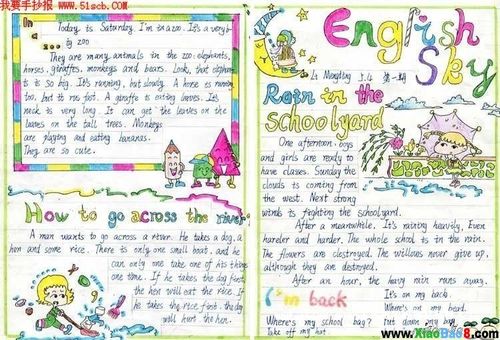 我要手抄报 www.51scb.com
In a zoo
Today is Saturday. I'm in a zoo. It's a very
big zoo
They are many animals in the zoo: elephants,
horses, giraffes, monkeys and bears. Look, that elephant
It is so big. It's running, but slowly. A horse is running
too, but it runs fast. A giraffe is eating leaves. It's
neck is very long. It can get the leaves on the
leaves on the tall trees. Monkeys
are playing and eating bananas.
They are so cute.
How to go across the river
A man wants to go across a river. He takes a dog, a
hen and some rice. There is only one small boat, and he
can only take one of his things
one time. If he takes the dog first,
the hen will eat the rice. If
he takes the rice first, the dog
will hurt the hen.
English
Sky
Rain in the
schoolyard
One afternoon, boys
and girls are ready to
have classes. Sunday the
clouds is coming from
the west. Next strong
winds is fighting the schoolyard.
After a meanwhile. It's raining heavily, Even
harder and harder. The whole school is in the rain.
The flowers are clestroyed. The willows never give up,
although they are destroyed.
After an hour, the heavy rain runs away.
I'm back
It's on my back.
Where's on my beard.
Where's my school bag? Put down my bag
Take off my hat.
www.XiaoBao8.com